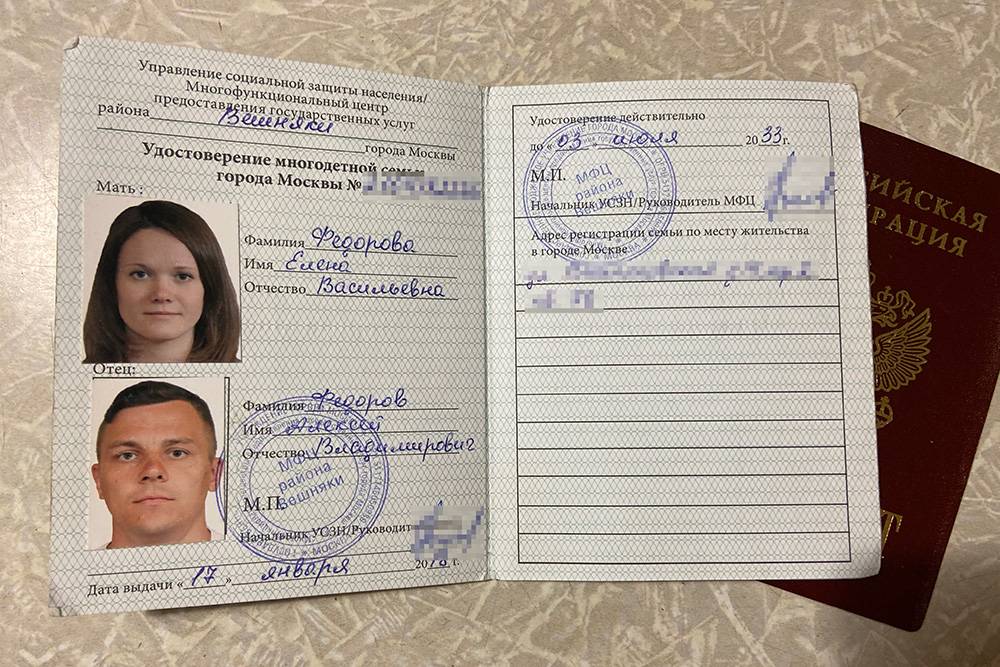 Управление социальной защиты населения/
Многофункциональный центр
предоставления государственных услуг
района Вешняки
города Москвы
Удостоверение многодетной семьи
города Москвы №
Мать :
Фамилия Федорова
Имя Елена
Отчество Васильевна
Отец:
Фамилия Федоров
Имя Алексей
Отчество Владимирович
МФЦ
района
Вешняки
М.П.
Начальник УСЗН/Руководит
Дата выдачи « 17 » января 20 г.
Удостоверение действительно
до « 03 июля 2033г.
М.П.
МФЦ
района
Вешняки
Начальник УСЗН/Руководитель МФЦ
Адрес регистрации семьи по месту жительства
в городе Москве
ул.
СИЙСКАЯ
ЕРАЦИЯ